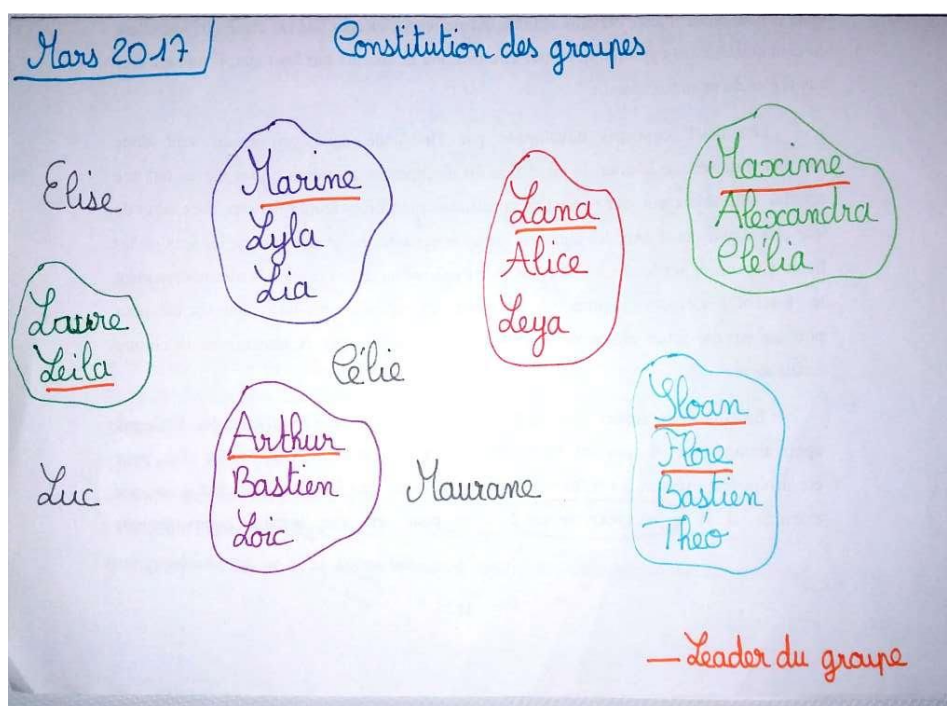 Mars 2017
Constitution des groupes
Elise
Marine
Lyla
Lia
Lana
Alice
Leya
Maxime
Alexandra
Clélia
Laure
Leila
Célie
Arthur
Bastien
Loïc
Luc
Maurane
Sloan
Flore
Bastien
Théo
— Leader du groupe